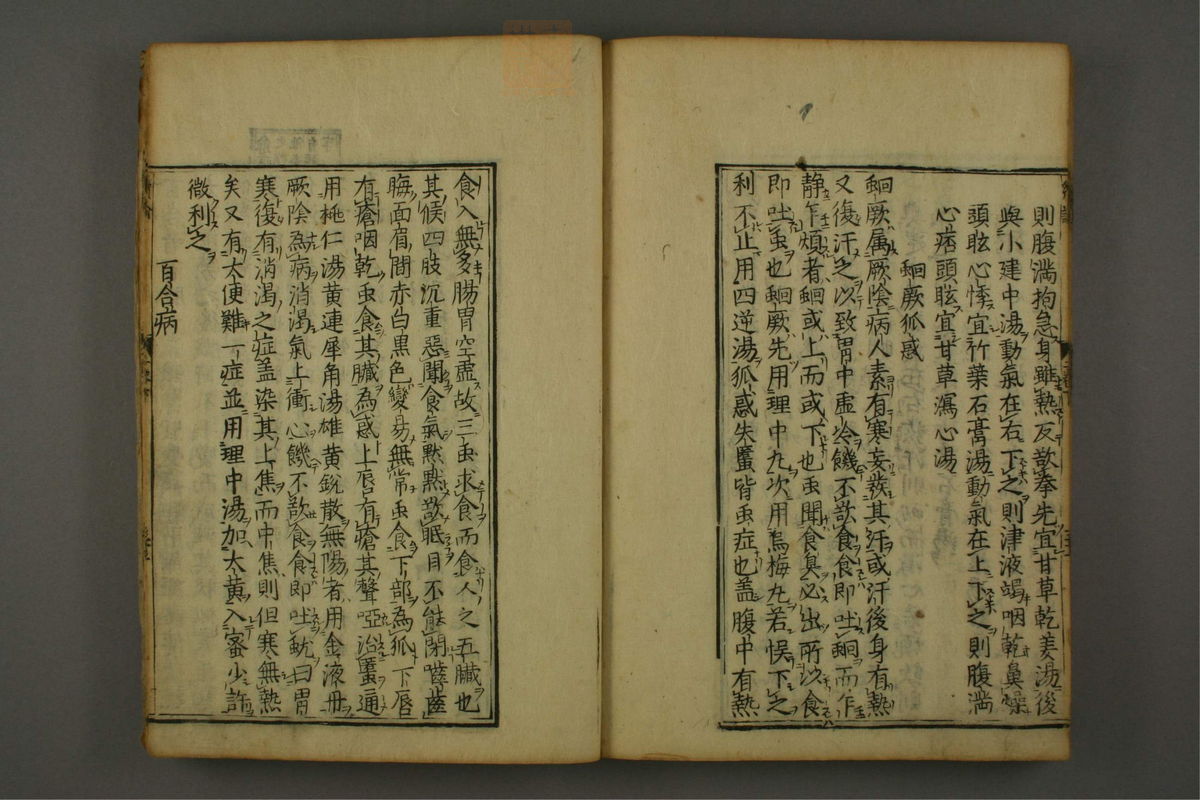 則腹満拘急身雖熱反欲拳先宜甘草乾姜湯後
與小建中湯動氣在右下之則津液竭咽乾鼻燥
頭眩心悸宜竹葉石膏湯動氣在上下之則腹満
心痞頭眩宜甘草瀉心湯
蛔厥狐惑
蛔厥属厥陰病人素有寒妄發其汗或汗後身有熱
又復汗之以致胃中虚冷饑不欲食食即吐蛔而乍
静乍煩者蛔或上而或下也虫聞食臭必出所以食
即吐虫也蛔厥先用理中丸次用烏梅丸若悞下之
利不止用四逆湯狐惑失䘌皆虫症也盖腹中有熱
食入無多腸胃空虚故三虫求食而食人之五臓也
其候四肢沉重惡聞食氣黙黙欲眠目不能閉噬齒
晦面眉間赤白黒色變易無常虫食下部為狐下唇
有瘡咽乾虫食其臓為惑上唇有瘡其聲啞治䘌通
用桃仁湯黄連犀角湯雄黄銳散無陽者用金液丹
厥陰為病消渇氣上衝心饑不欲食食即吐蚘曰胃
寒復有消渇之症盖染其上焦而中焦則但寒無熱
矣又有大便難一症並用理中湯加大黄入蜜少許
微利之
百合病